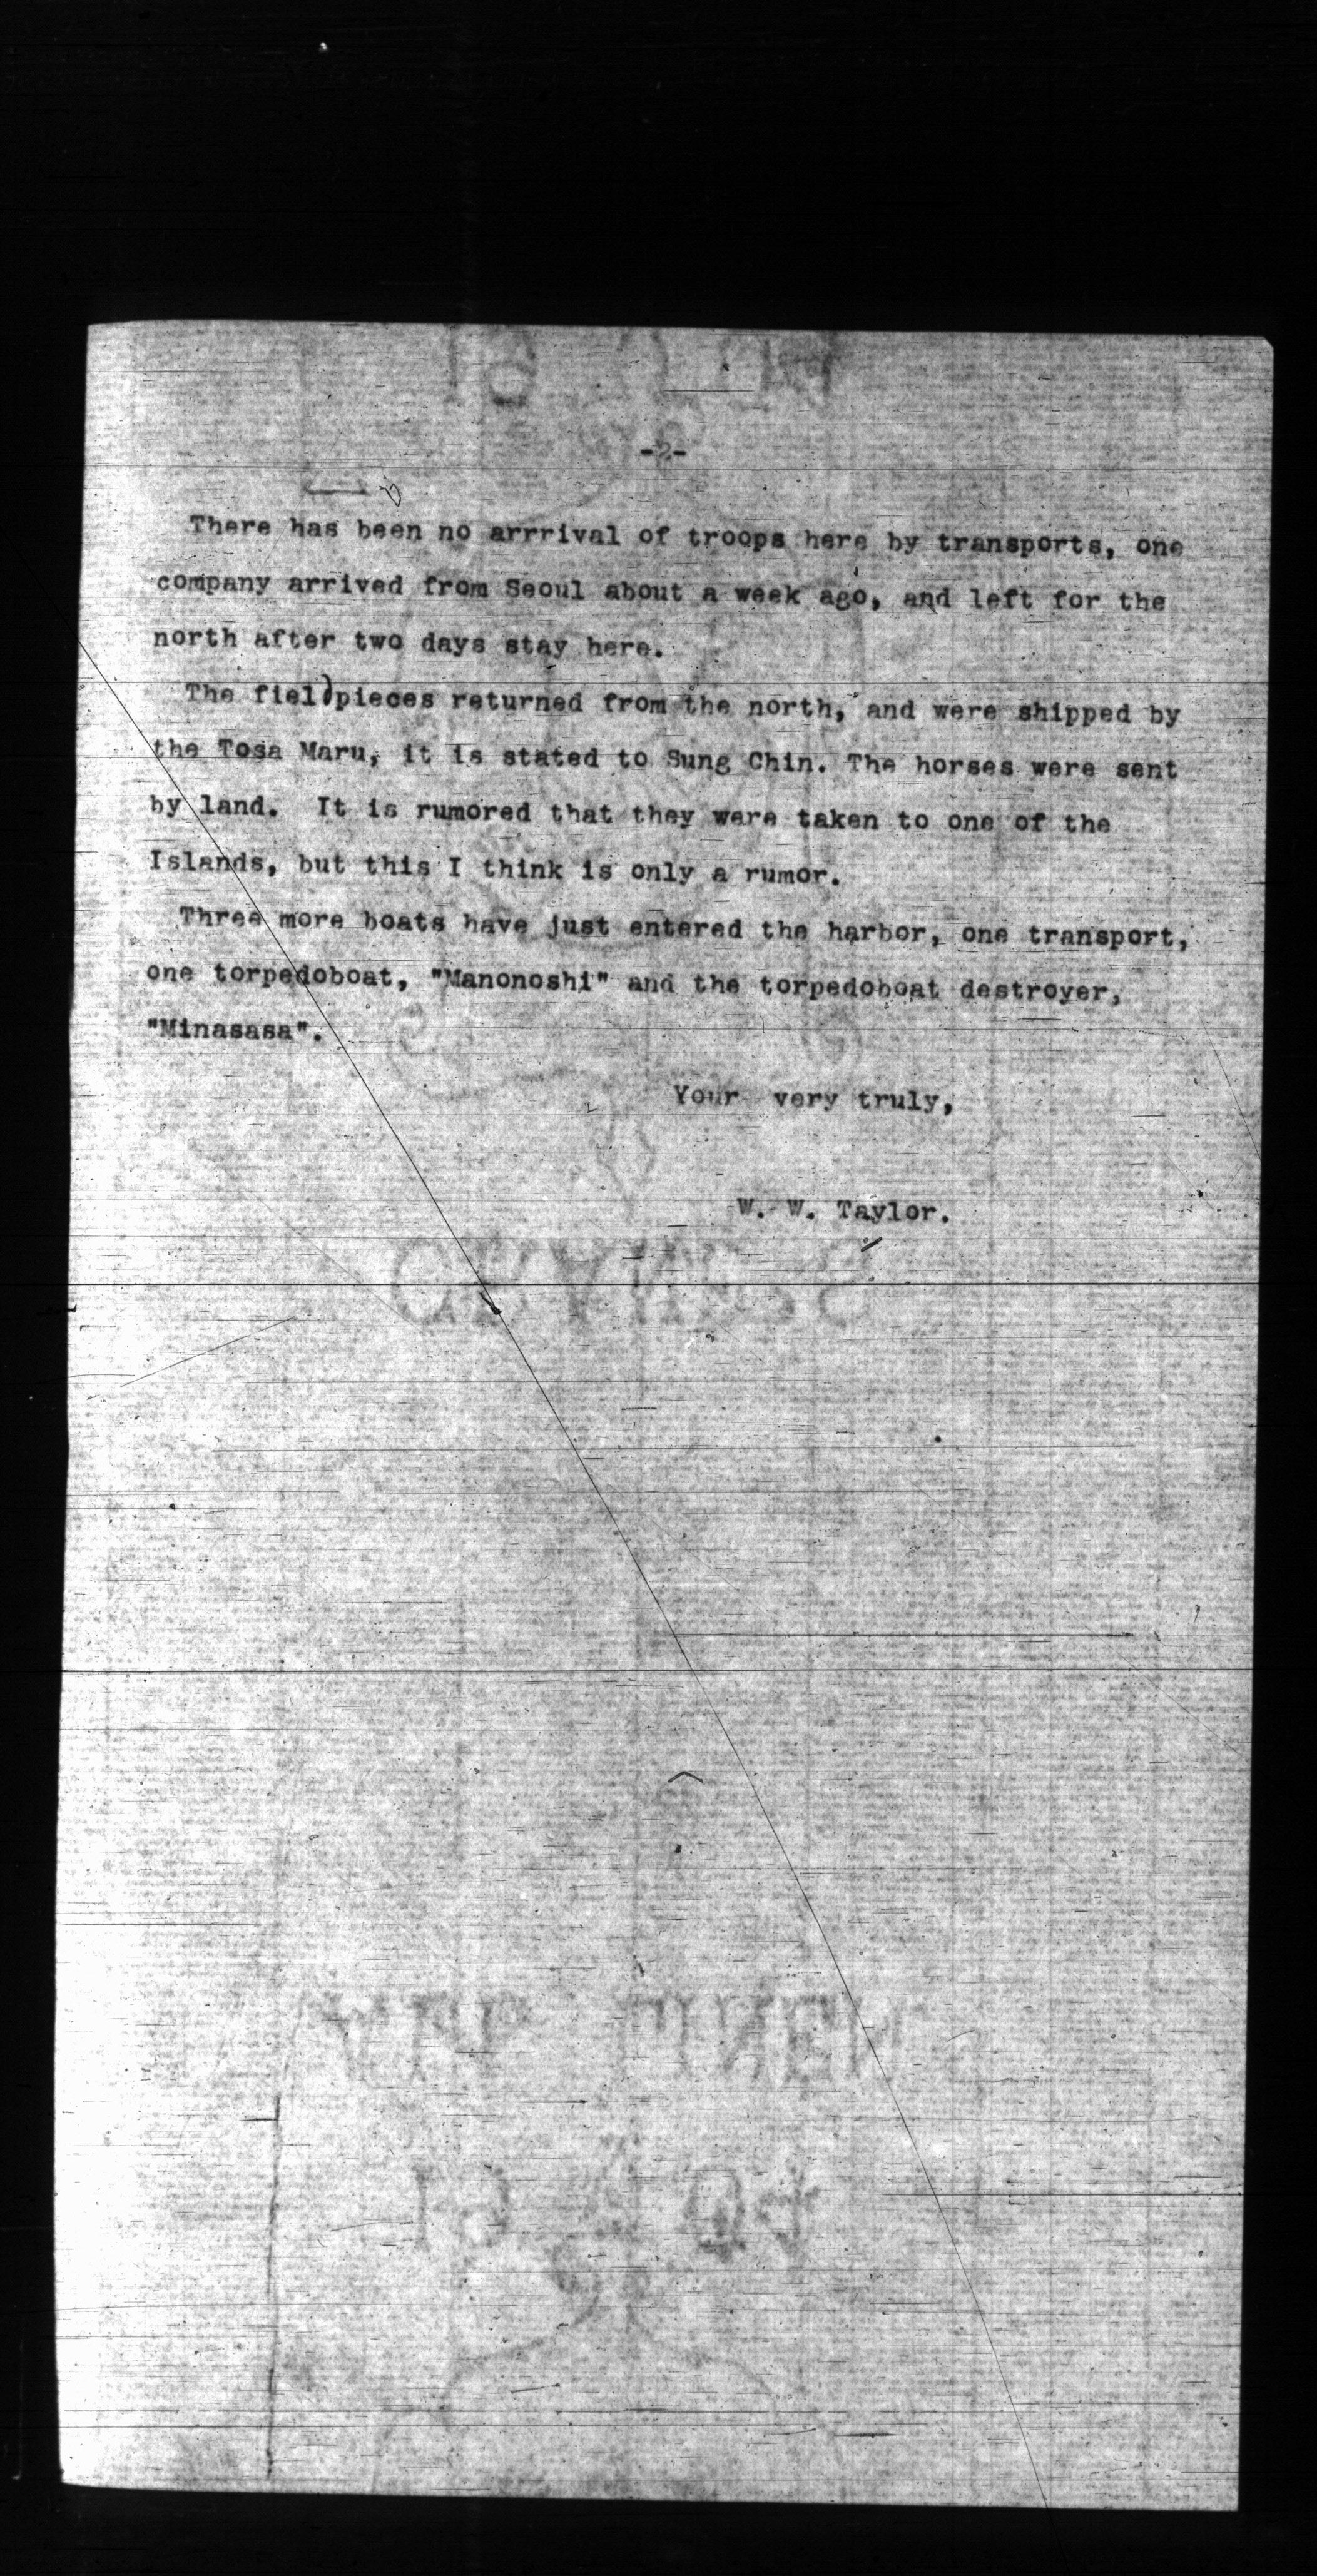 -2-
There has been no arrrival of troops here by transports, one
company arrived from Seoul about a week ago, and left for the
north after two days stay here.
The fieldpieces returned from the north, and were shipped by
the Tosa Maru, it is stated to Sung Chin. The horses were sent
by land. It is rumored that they were taken to one of the
Islands, but this I think is only a rumor.
Three more boats have just entered the harbor, one transport,
one torpedoboat, "Manonoshi" and the torpedoboat destroyer,
"Minasasa".
Your very truly,
W. W. Taylor.